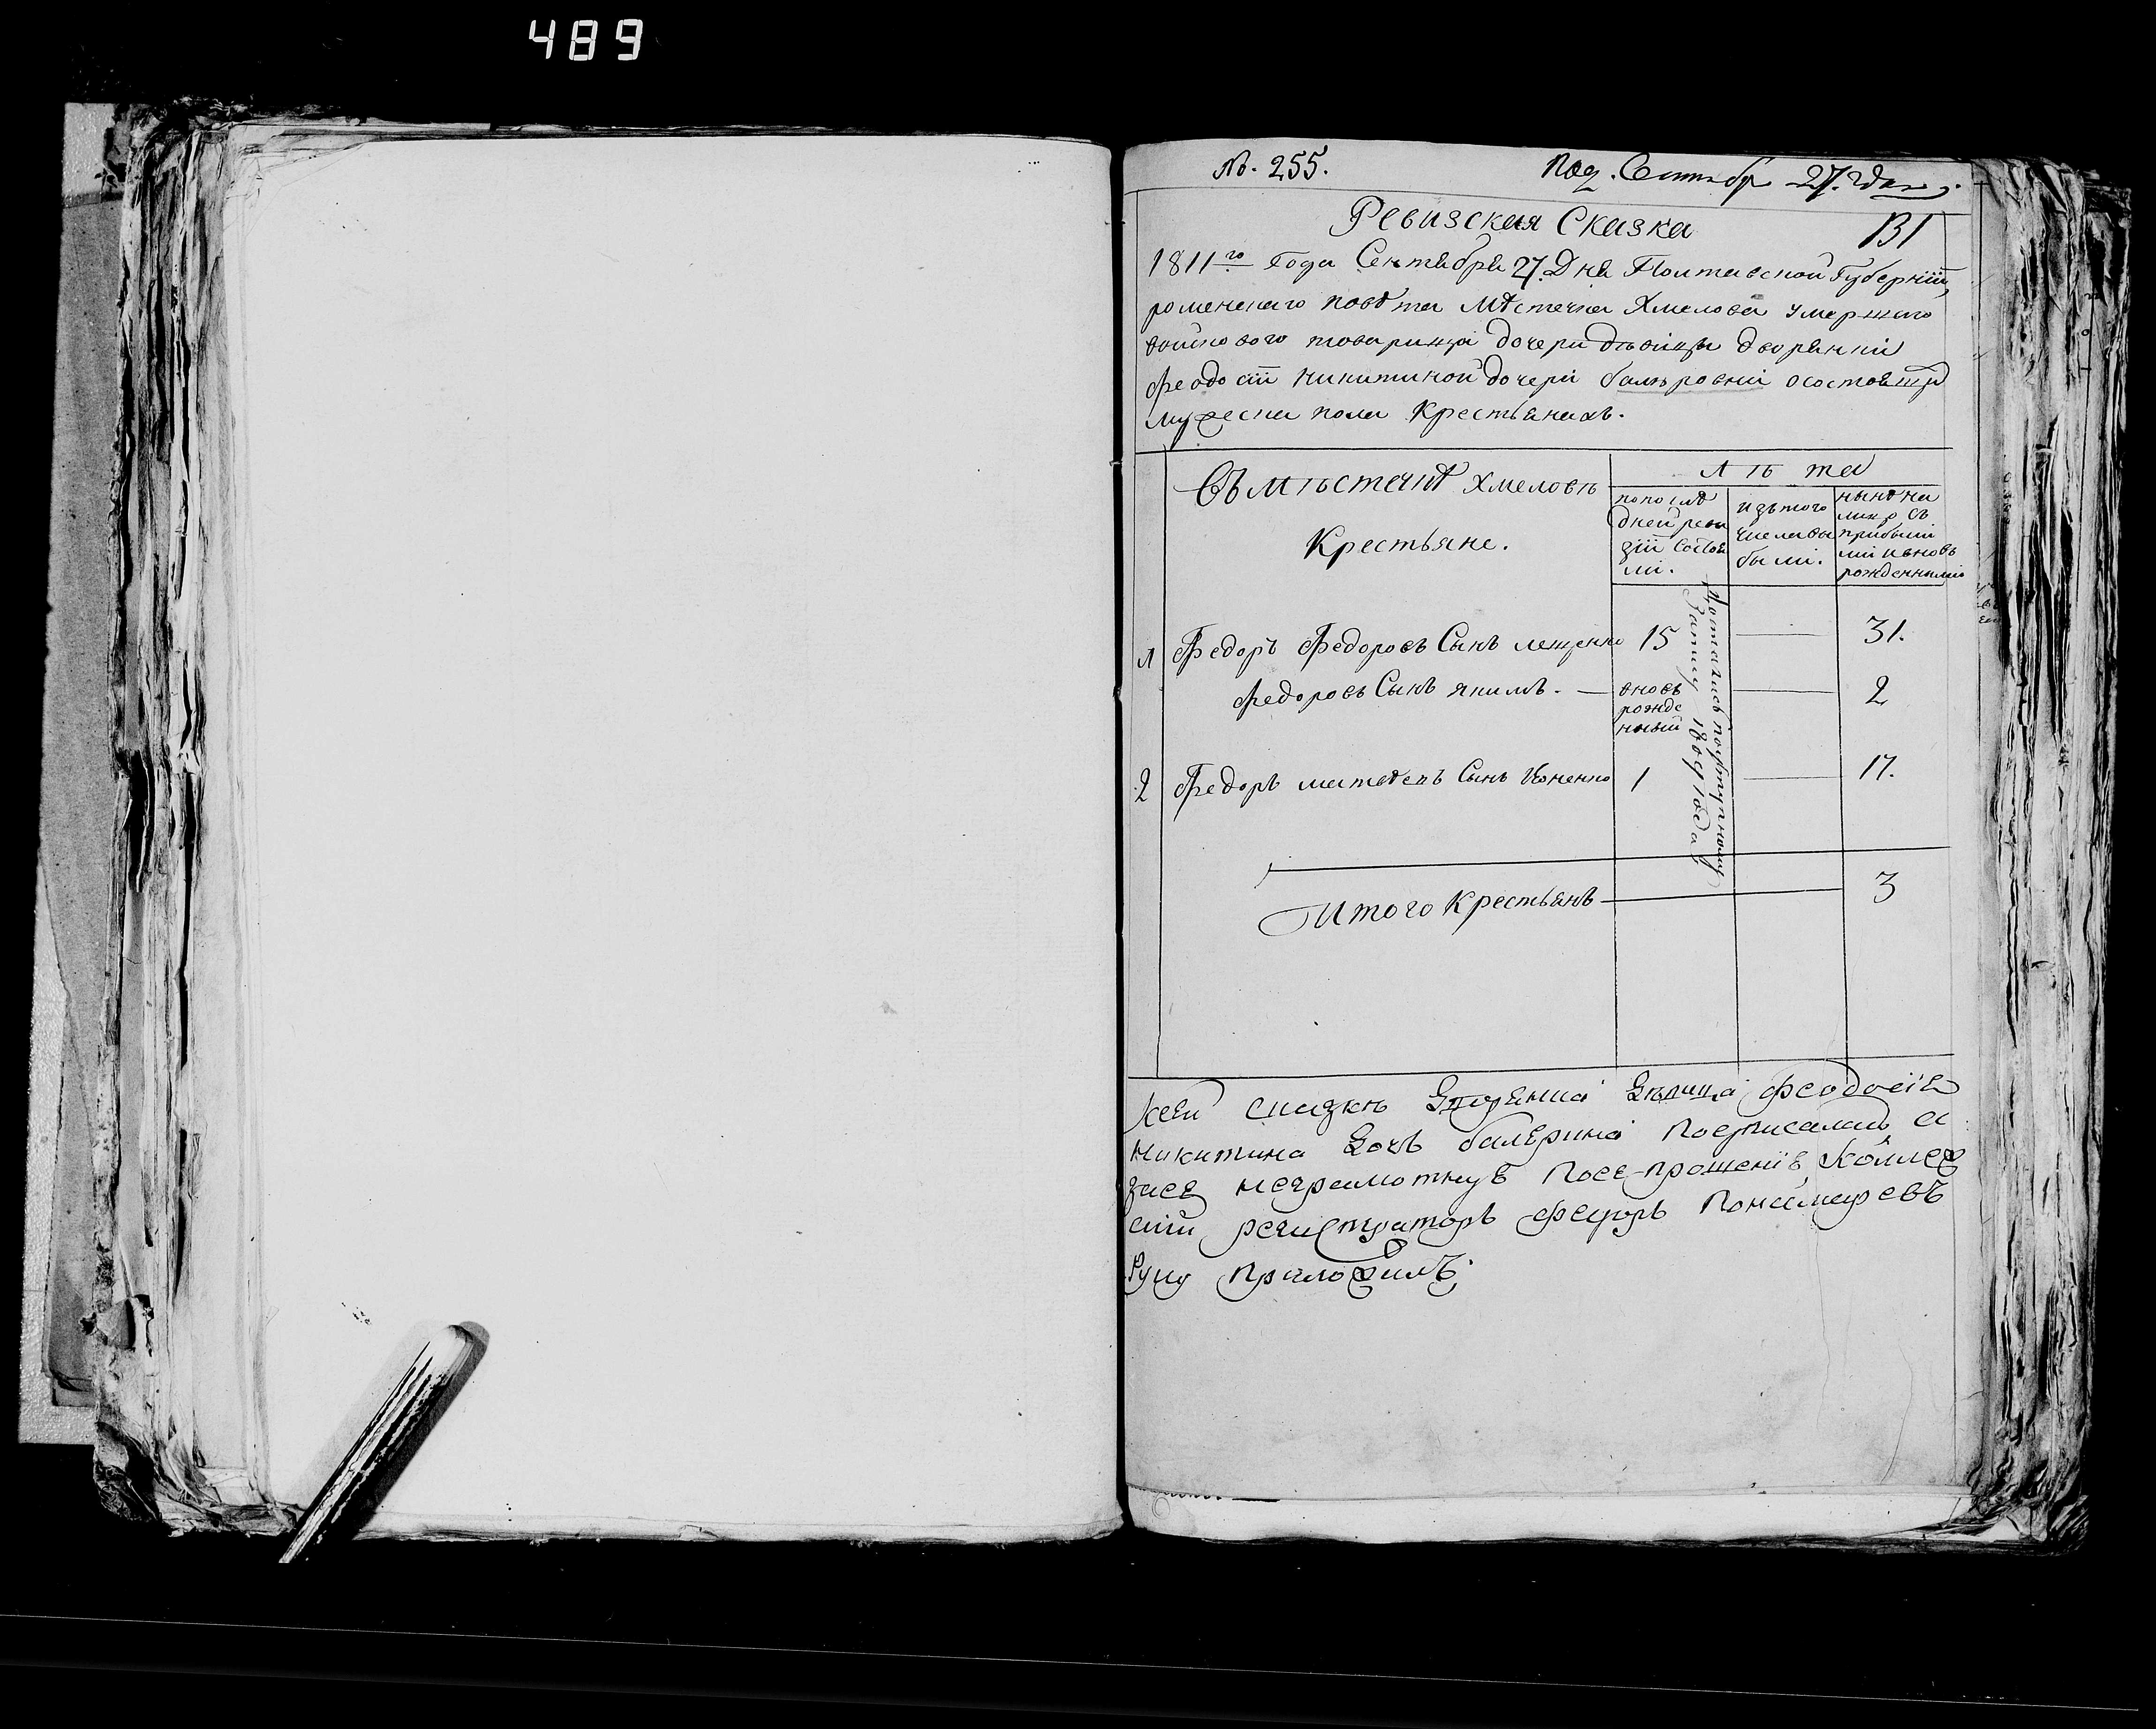 489
№. 255. Под. Сентябр 27. дня.
Ревизская Сказка 131
1811го Года Сентября 27. Дня Полтавской Губерніи
роменскаго повѣта мѣстечка Хмелова умершаго
войскового товарища дочери дѣвицы дворянки
феодосіи никитиной дочери балъровни осостоящи
мужеска пола Крестьянахъ.
Въ мѣстечкѣ хмеловѣ
Крестьяне.
лѣта
по послѣ
дней реви
зіи состоя
ли.
изъ того
числа вы
были.
нынѣ на
лицо съ
прибыли
ми и вновь
рожденными
Достались по
1809 года
1 Федоръ Федоровъ Сынъ лещенко 15 — 31.
федоровъ Сынъ якимъ. — вновь
рожде
нный — 2
2 Федоръ матвѣевъ Сынъ Кононенко 1 — 17.
Итого Крестьянъ — 3
Ксей сказкѣ Дворянка Дѣвица феодосія
никитина Дочь балярина подписалась а
занее неграмотную поее прошенію Коллеж
скій регистраторъ федоръ Пономаревъ
Руку приложилъ: